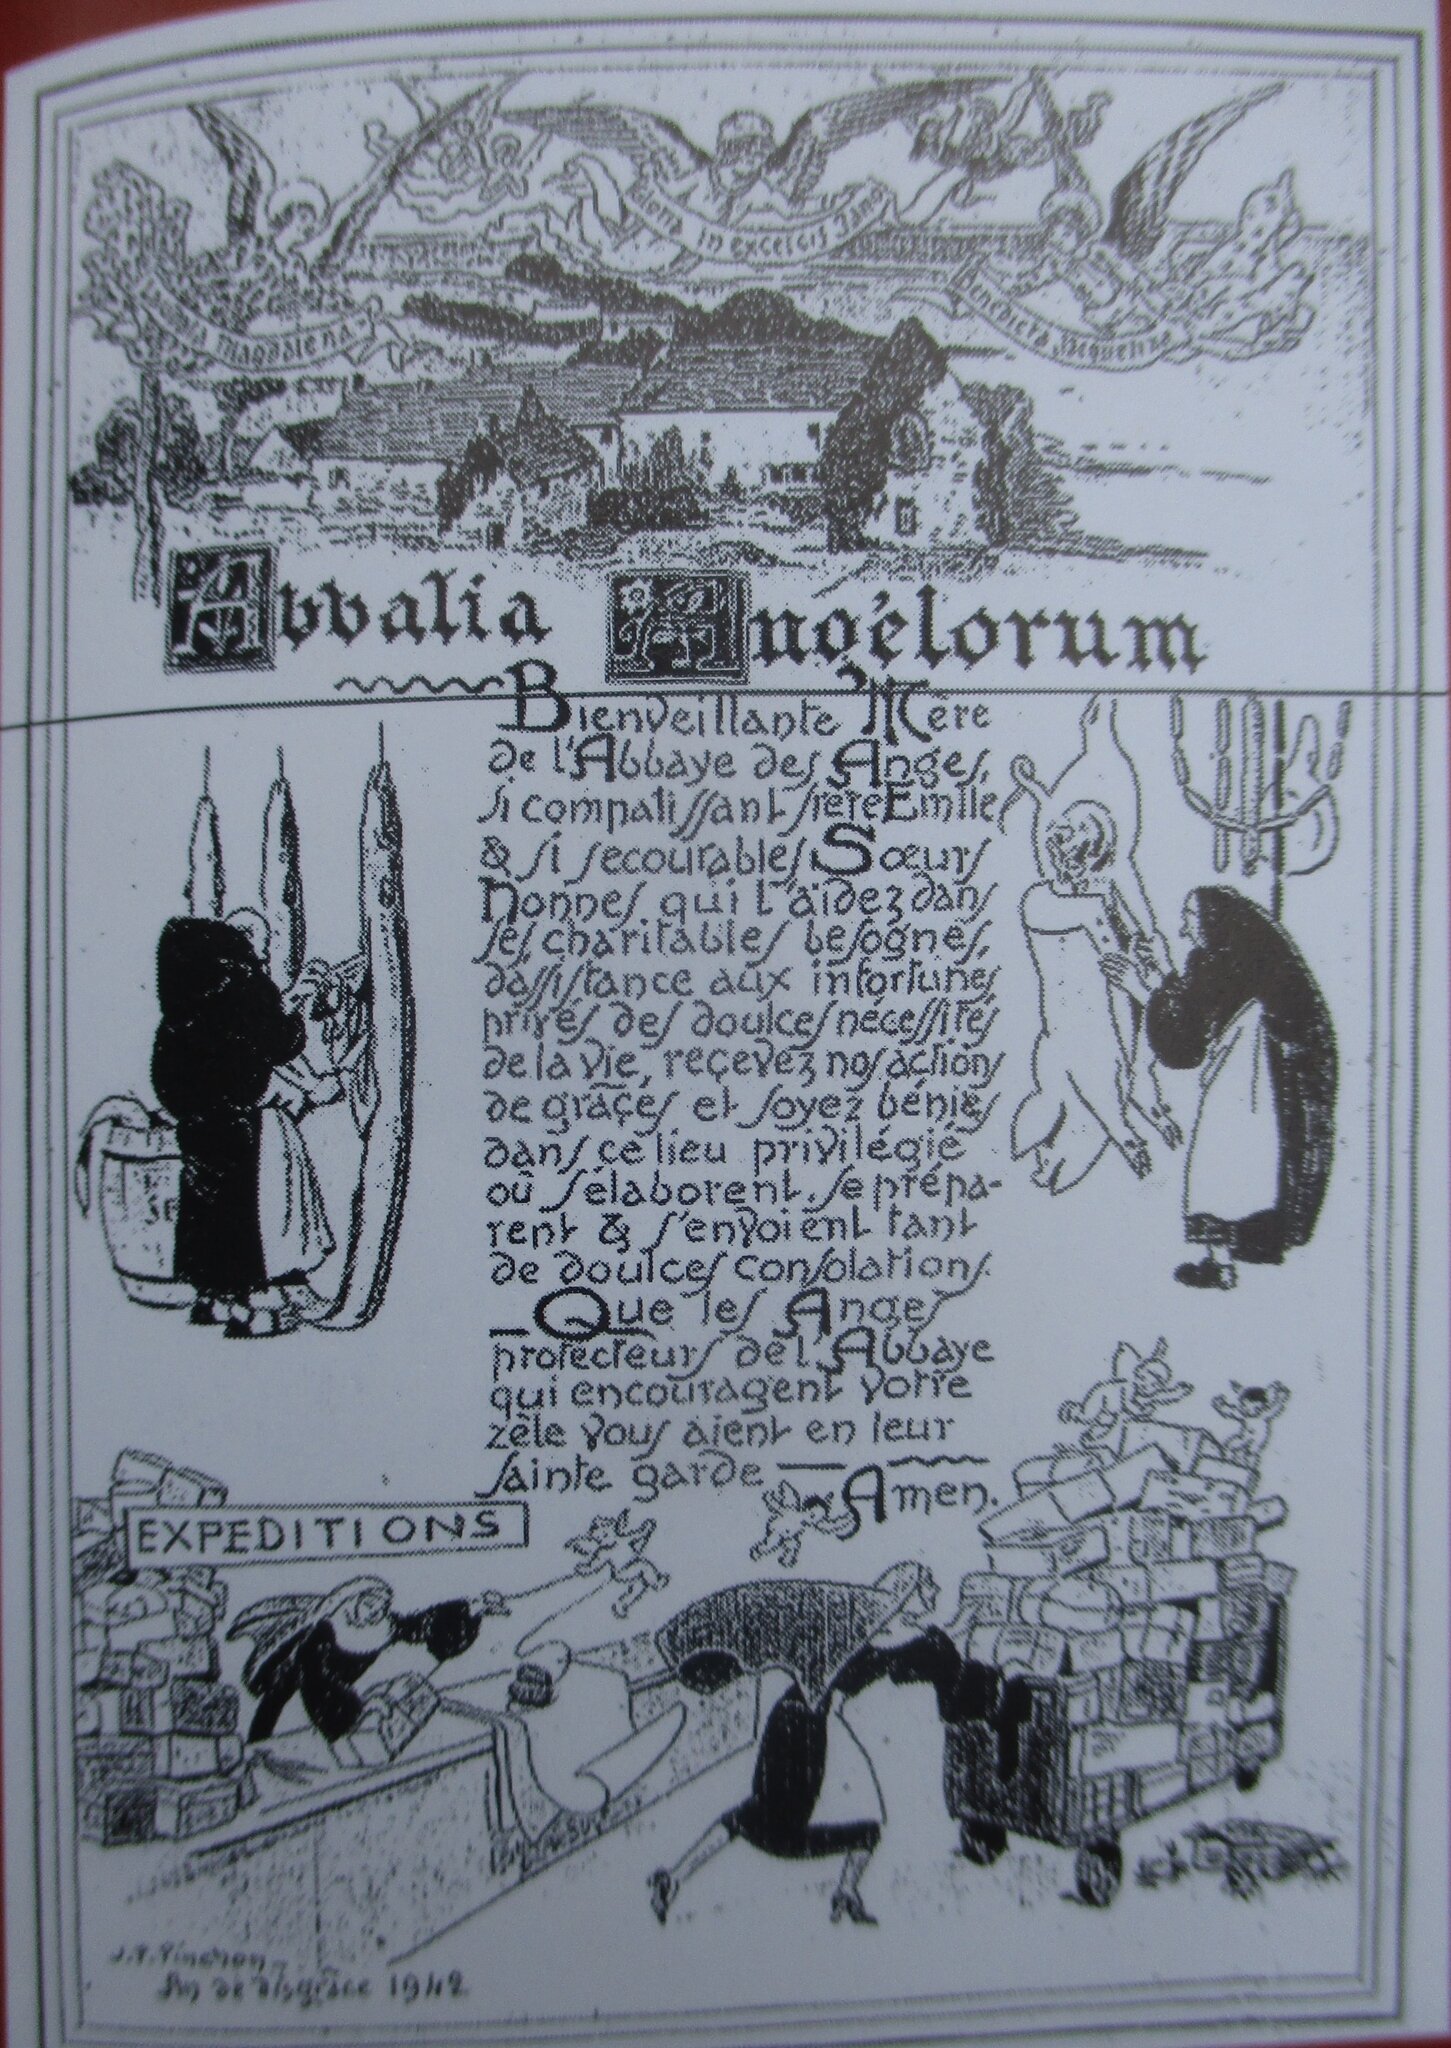 Gloria in excelcis Jano
Magdalena
Benedicta Jacqueline
Abbalia Angélorum
Bienveillante Mère
de l'Abbaye des Anges,
si compatissant frère Emile
& si secourables Sœurs
Nonnes qui l'aïdez dans
ses charitables besognes,
dassistance aux infortunés
privés des doulces nécessités
de la vie, reçevez nos action
de grâçes et soyez bénies
dans ce lieu privilégié
où s'élaborent, se prépa-
rent & s'envoient tant
de doulces consolations.
Que les Anges
protecteurs de l'Abbaye
qui encouragent votre
zèle vous aient en leur
sainte garde
Amen.
SE
EXPEDITIONS
J.P. Pinchon
An de disgrâce 1942